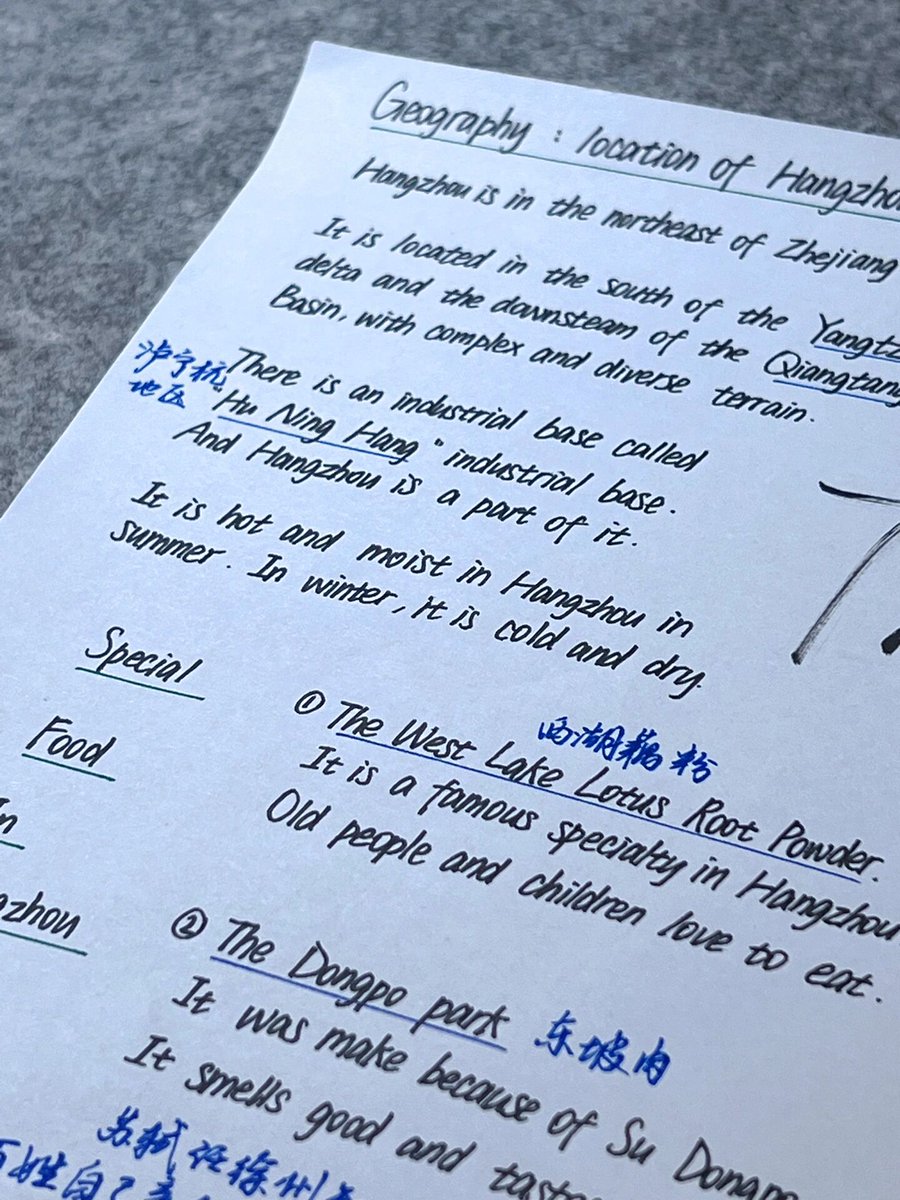 Geography : location of Hangzhou
Hangzhou is in the northeast of Zhejiang
It is located in the south of the Yangtz
delta and the downsteam of the Qiangtang
Basin, with complex and diverse terrain.
沪宁杭
地区
There is an industrial base called
"Hu Ning Hang" industrial base.
And Hangzhou is a part of it.
It is hot and moist in Hangzhou in
summer. In winter, it is cold and dry.
Special
Food
In
gzhou
西湖藕粉
① The West Lake Lotus Root Powder.
It is a famous specialty in Hangzhou
Old people and children love to eat.
② The Dongpo park 东坡肉
It was make because of Su Dongp
It smells good and taste
苏轼任徐州
百姓自